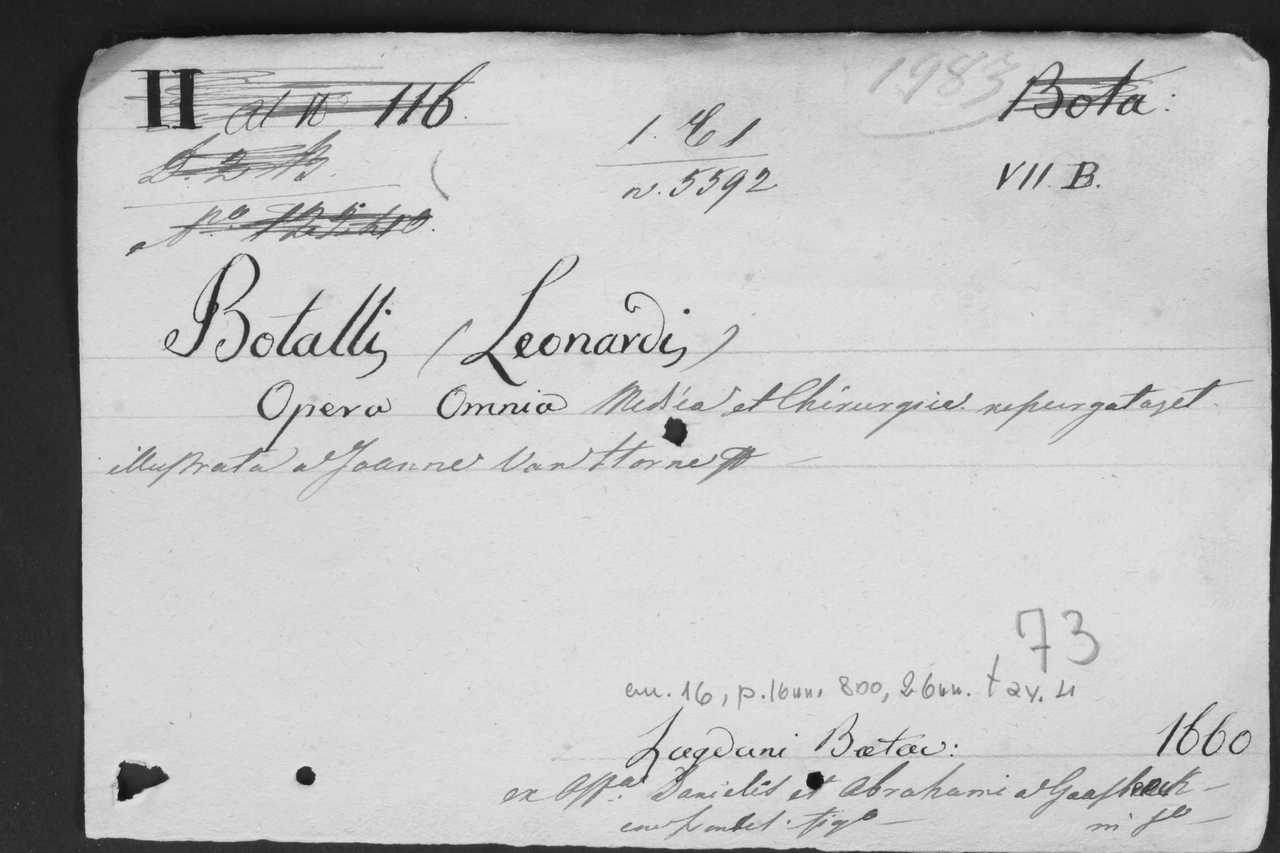 II al No 116.
1983
Bota:
1. E 1
D. 2
n. 5592
VII. B.
No
Botalli, (Leonardi,)
Opera Omnia Medica et Chirurgica. repurgata, et
illustrata a Joanne Van Horne
73
cm. 16, p. 16nn. 800, 26nn. + av. 4
Lugduni Batav: 1660
ex Offa. Danielis et Abrahami a Gaasbeek
cum fig.